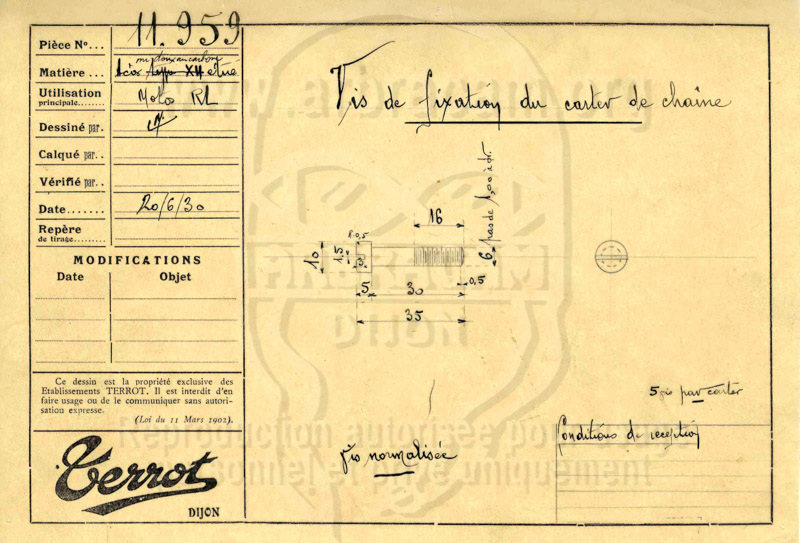 Pièce No... 11.959
Matière... Acier mi-doux au carbone
Utilisation principale........ Moto RL
Dessiné par.
Calqué par..
Vérifié par..
Date....... 20/6/30
Repère
de tirage.......
MODIFICATIONS
Date Objet
Ce dessin est la propriété exclusive des
Etablissements TERROT. Il est interdit d'en
faire usage ou de le communiquer sans autori-
sation expresse.
(Loi du 11 Mars 1902).
Terrot
DIJON
Vis de fixation du carter de chaîne
16
6 pas de 1,00 à dr.
R.0,5
10
1.5
3
5
30
0,5
35
5 vis par carter
Vis normalisée
Conditions de réception
www.abracam.org
ABRACAM
DIJON
Reproduction autorisée pour usage
personnel et privé uniquement